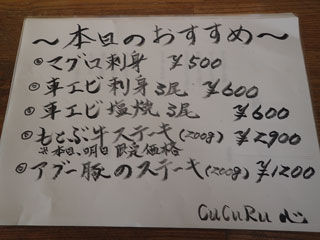 ～本日のおすすめ～
◎マグロ刺身 ¥500
◎車エビ刺身3尾 ¥600
◎車エビ塩焼3尾 ¥600
◎もとぶ牛ステーキ(200g) ¥2900
※本日、明日限定価格
◎アグー豚のステーキ(200g) ¥1200
CuCuRu 心